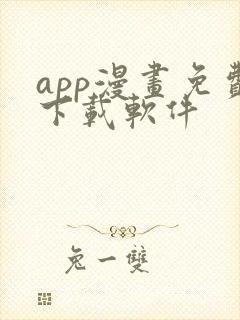 app漫畫免費
下載軟件
兔一雙